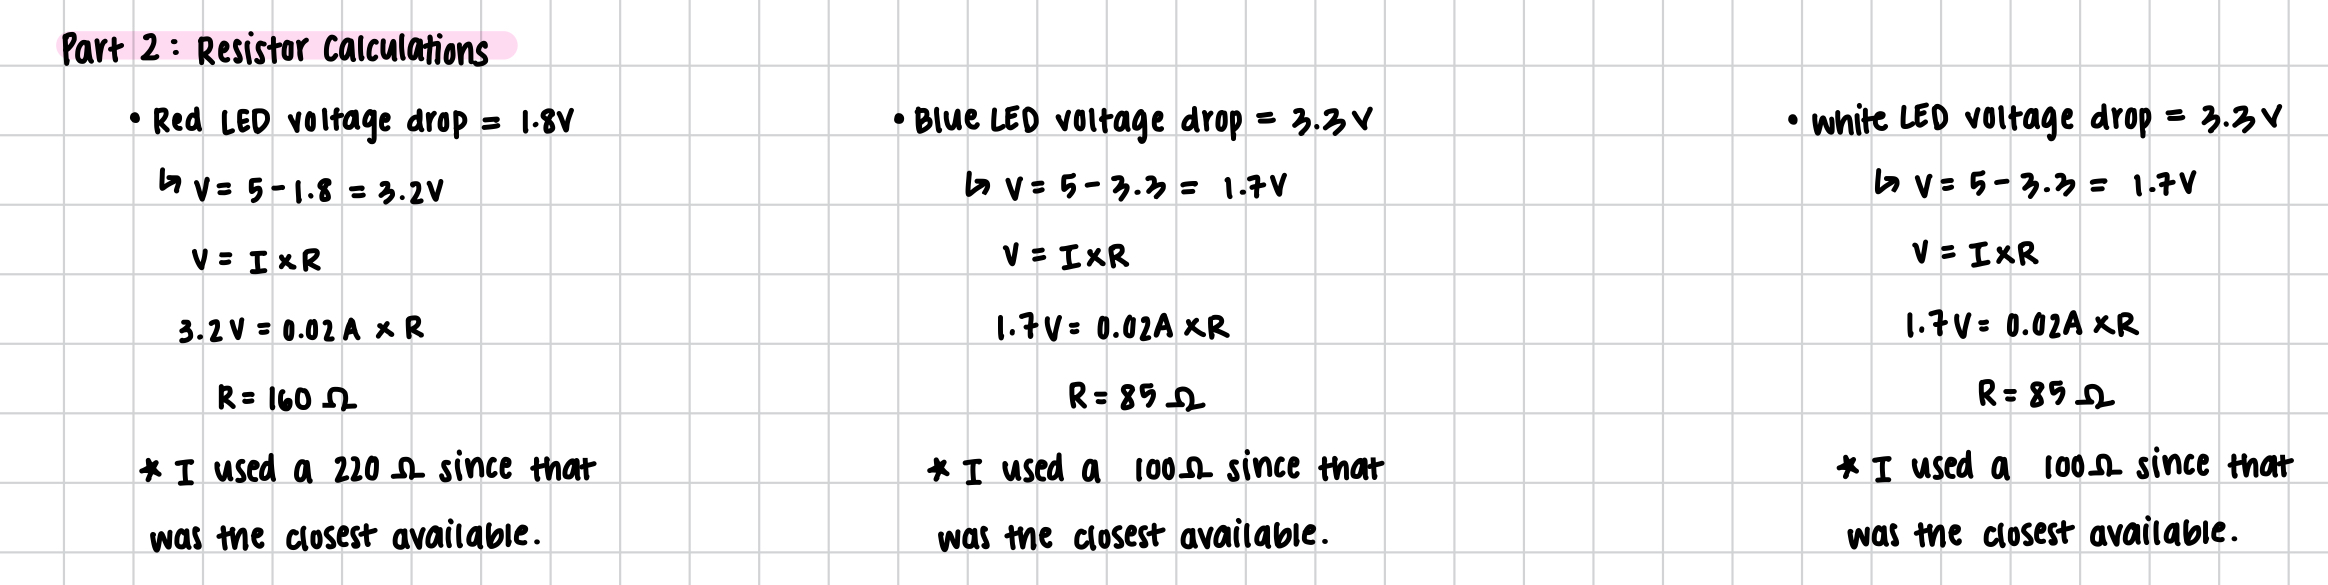 Part 2: Resistor Calculations
• Red LED voltage drop = 1.8V
↳ V = 5 - 1.8 = 3.2V
V = I x R
3.2V = 0.02A x R
R = 160 Ω
* I used a 220 Ω since that
was the closest available.
• Blue LED voltage drop = 3.3V
↳ V = 5 - 3.3 = 1.7V
V = I x R
1.7V = 0.02A x R
R = 85 Ω
* I used a 100 Ω since that
was the closest available.
• White LED voltage drop = 3.3V
↳ V = 5 - 3.3 = 1.7V
V = I x R
1.7V = 0.02A x R
R = 85 Ω
* I used a 100 Ω since that
was the closest available.